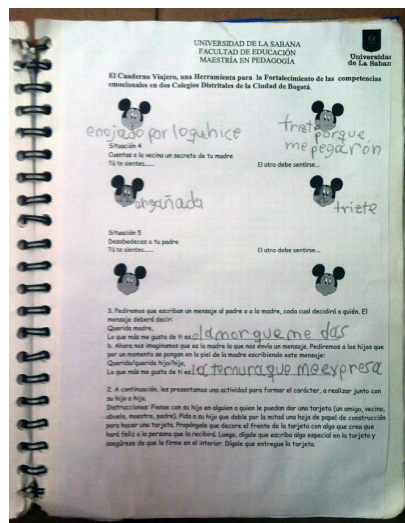 UNIVERSIDAD DE LA SABANA
FACULTAD DE EDUCACIÓN
MAESTRÍA EN PEDAGOGÍA
Universidad
de La Sabana
El Cuaderno Viajero, una Herramienta para la Fortalecimiento de las competencias
emocionales en dos Colegios Distritales de la Ciudad de Bogotá.
enojado por loquhice
trizte porque
me pegaron
Situación 4
Cuentas a la vecina un secreto de tu madre
Tú te sientes.....
El otro debe sentirse...
angañada
trizte
Situación 5
Desobedeces a tu padre
Tú te sientes...
El otro debe sentirse...
3. Pediremos que escriban un mensaje al padre o a la madre, cada cual decidirá a quién. El
mensaje deberá decir:
Querida madre,
Lo que más me gusta de ti es: el amor que me das
b. Ahora nos imaginamos que es la madre la que nos envía un mensaje. Pediremos a los hijos que
por un momento se pongan en la piel de la madre escribiendo este mensaje:
Querida/querido hija/hijo,
Lo que más me gusta de ti es: la ternura que me expresa
2. A continuación, les presentamos una actividad para formar el carácter, a realizar junto con
su hijo o hija.
Instrucciones: Piense con su hijo en alguien a quien le puedan dar una tarjeta (un amigo, vecino,
abuelo, maestro, padre). Pida a su hijo que doble por la mitad una hoja de papel de construcción
para hacer una tarjeta. Propóngale que decore el frente de la tarjeta con algo que crea que
hará feliz a la persona que la recibirá. Luego, dígale que escriba algo especial en la tarjeta y
asegúrese de que la firme en el interior. Dígale que entregue la tarjeta.